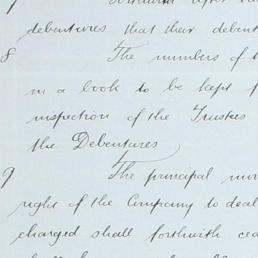 7
debentures that their deben
8 The numbers of
in a book to be kept
inspection of the Trustees
the Debentures
9 The principal mon
right of the Company to deal
charged shall forthwith cea